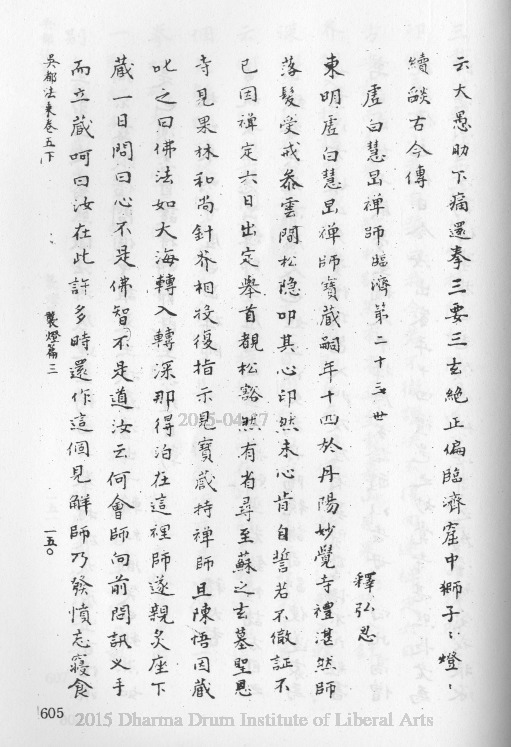 云大愚肋下痛還拳三要三玄絕正偏臨濟窟中獅子〻燈〻
續燄古今傳
虛白慧旵禪師臨濟第二十三世
釋弘忍
東明虛白慧旵禪師寶藏嗣年十四於丹陽妙覺寺禮湛然師
落髮受戒叅雲間松隐叩其心印然未心肯自誓若不徹証不
已因禅定六日出定舉首覩松豁然有省尋至蘇之玄墓聖恩
寺見果林和尚針芥相投復指示見寶藏持禅師且陳悟因藏
叱之曰佛法如大海轉入轉深那得泊在這裡師遂親炙座下
藏一日問曰心不是佛智不是道汝云何會師向前問訊乂手
而立藏呵曰汝在此許多時還作這個見解師乃發憤忘寢食
吳都法乘卷五下
襲燈篇三
一五〇
605
2015-04-27
2015 Dharma Drum Institute of Liberal Arts